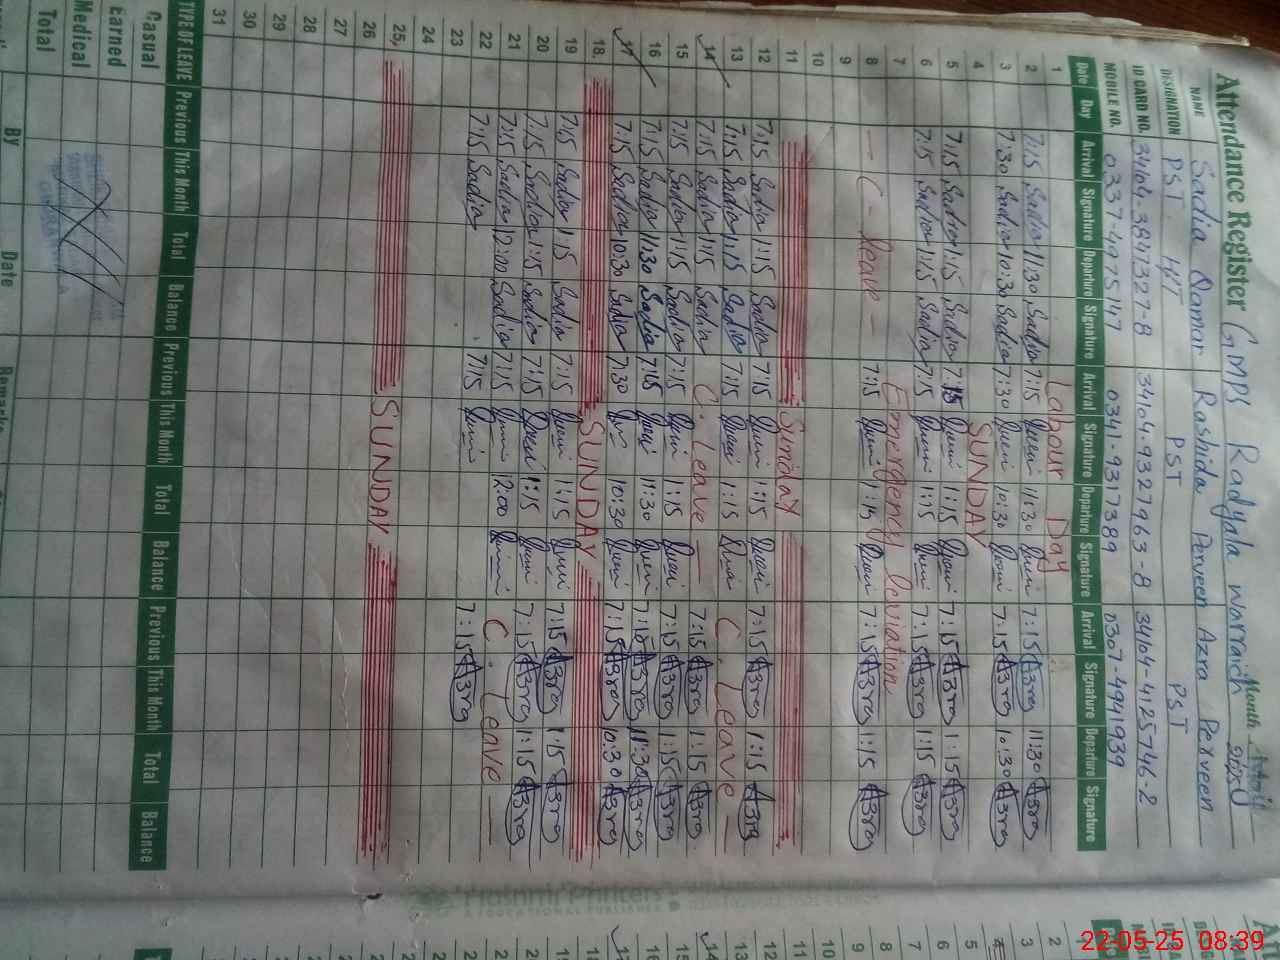 Attendance Register GMPS Radyala Warraich Month 2025
NAME Sadia Qamar Rashida Perveen Azra Perveen
DESIGNATION PST HT PST PST
ID CARD NO. 34104-3847327-8 34104-9327963-8 34104-4125746-2
MOBILE NO. 0337-4975147 0341-9317389 0307-4941939
Date Day Arrival Signature Departure Signature Arrival Signature Departure Signature Arrival Signature Departure Signature
1 Labour Day
2 7:15 Sadia 11:30 Sadia 7:15 11:30 7:15 Azra 11:30 Azra
3 7:30 Sadia 10:30 Sadia 7:30 10:30 7:15 Azra 10:30 Azra
4 SUNDAY
5 7:15 Sadia 1:15 Sadia 7:15 1:15 7:15 Azra 1:15 Azra
6 7:15 Sadia 1:15 Sadia 7:15 1:15 7:15 Azra 1:15 Azra
7 Emergency
8 C-leave 7:15 1:15 7:15 Azra 1:15 Azra
9
10
11 Sunday
12 7:15 Sadia 1:15 Sadia 7:15 1:15 7:15 Azra 1:15 Azra
13 7:15 Sadia 1:15 Sadia 7:15 1:15 C. Leave
14 7:15 Sadia 1:15 Sadia C. Leave 7:15 Azra 1:15 Azra
15 7:15 Sadia 1:15 Sadia 7:15 1:15 7:15 Azra 1:15 Azra
16 7:15 Sadia 11:30 Sadia 7:15 11:30 7:15 Azra 11:30 Azra
17 7:15 Sadia 10:30 Sadia 7:30 10:30 7:15 Azra 10:30 Azra
18. SUNDAY
19 7:15 Sadia 1:15 Sadia 7:15 1:15 7:15 Azra 1:15 Azra
20 7:15 Sadia 1:15 Sadia 7:15 1:15 7:15 Azra 1:15 Azra
21 7:15 Sadia 12:00 Sadia 7:15 12:00 C. Leave
22 7:15 Sadia 7:15 7:15 Azra
23
24
25, SUNDAY
26
27
28
29
30
31
TYPE OF LEAVE Previous This Month Total Balance Previous This Month Total Balance Previous This Month Total Balance
Casual
Earned
Medical
Total
By Date Remarks
Hashmi Printers
22-05-25 08:39